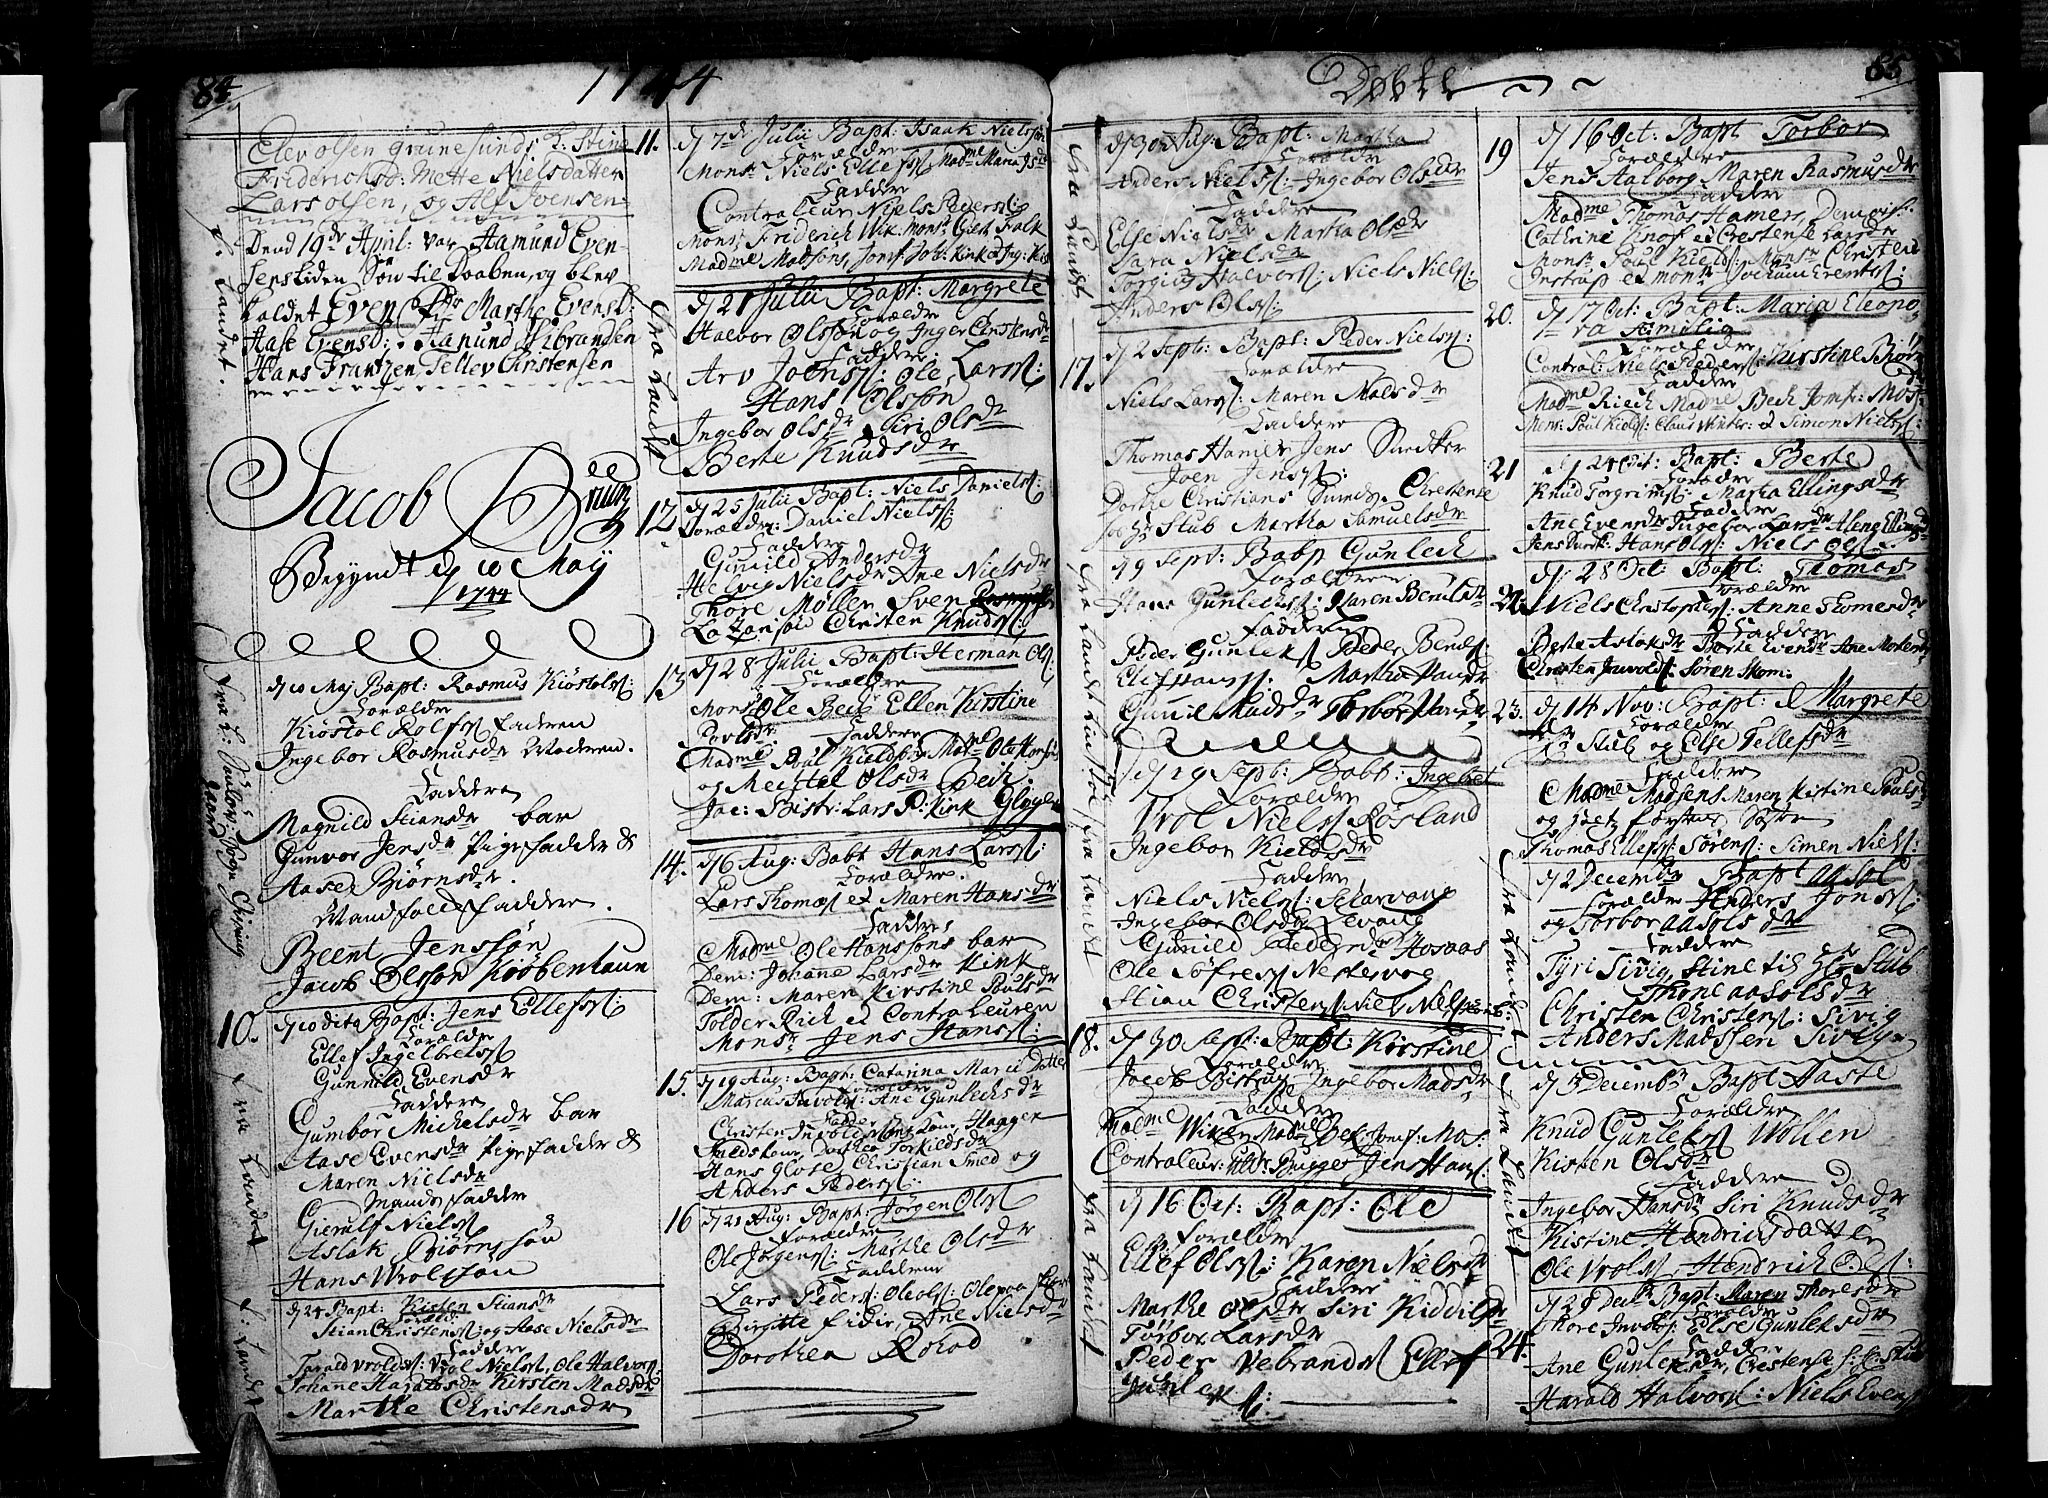 84.
1744
Elev olsen Grünesunds D: Stine
Frederichsd: Mette Nielsdatter
Lars olsen, og Alf Ivensen
Dend 19de April: var Aamund Even-
sens liden Søn til Daaben, og blev
kaldet Even Marthe Evensd:
Aase Evensd: Aamund
Hans Frantzen Tellev Christensen
fra Landet.
Jacob
Begyndt d 10 May
1744
d 10 Maj Bapt: Rasmus Kiøstols:
Forældre
Kiøstol Rolfs: Faderen
Ingebor Rasmusdr Moderen.
Faddere
Magnild Stiansdr bar
Gunvor Jensdr Pigefadder &
Aase Biørnsdr.
Mandfolckefaddere.
Breent Jenssøn
Jacob Olsson Kiøbenhaun
10.
d 10 dito Bapt: Jens Ellefs:
Forældre
Ellef Ingelbets:
Gunnild Evensdr
Faddere
Gumbor Michelsdr bar
Aase Evensdr Pigefadder &
Maren Nielsdr
Mandsfadder
Gierulf Niels:
Aslak Biørnssøn
Hans Wrolssøn
fra Landet
d 24 Bapt: Kisten Stiansdr
Foræld:
Stian Christens: og Aase Nielsdr
Faddere
Tarald Vrolds: Vrol Niels: Ole Halvors:
Johanne Haraldsdr Kirsten Madsdr
Marthe Christensdr
11.
d 7de Julii Bapt: Isaak Nielssøn
Forældre
Mons: Niels Ellefs: Madme Maria Isdr
Faddere
Contraleur Niels Peders:
Mons: Friderich Wik: Monsr Giert Falk
Madme Madsons, Jomf: Joh: Kirk et Ing: Kis
d 21 Julii Bapt: Margrete
Forældre
Halvor Olsøn og Inger Christensdr
Faddere
Arv Joens: Ole Lars:
Hans Olsøn
Ingebor Olsdr Siri Olsdr
Berte Knudsdr
fra Landet
12.
d 25 Julii Bapt: Niels Daniels:
Forældre: Daniel Niels:
Faddere
Gunild Andersdr
Helvig Nielsdr Ane Nielsdr
Thore Møller Sven
Christen Knuds:
13
d 28 Julii Bapt: Herman Ols:
Forældre
Monsr Ole Beik Ellen Kirstine
Povlsdr
Faddere
Madme Poul Kields: Madme Ole Hans:
og Mechtel Olsdr Beik.
Jac: Bistr: Lars P: Kirk
14.
d 6 Aug: Babt Hans Lars:
Forældre.
Lars Thomæs: et Maren Hansdr
Faddere
Madme Ole Hanssøns bar
Dem: Johanne Larsdr Kirk
Dem: Maren Kirstine Poulsdr
Tolder Rick et Contraleuren
Monsr Jens Hans:
15.
d 19 Aug: Bapt: Catarina Marcus Dotter
Forældre
Marcus Inwolds: Ane Gunlechsdr
Fadder
Christen Inwolds: Haagen
Dorthea Torkildsdr
Hans Glose, Christian Smed og
Anders Peders:
16
d 21 Aug: Bapt: Jørgen Ols:
Forældre
Ole Jørgens: Marthe Olsdr
Faddere
Lars Peders: Ole Ols: Ole
Birgitte Fidie, Ane Nielsdr
Dorothea Rorod
Døbte
85
d 30 Aug: Bapt: Martha
Forældre
Anders Niels: Ingebor Olsdr
Faddere
Else Nielsdr Martha Olsdr
Sara Nielsdr
Torgius Halvors: Niels Niels:
Anders Ols:
fra Landet
17.
d 2 Sept: Bapt: Peder Niels:
Forældre
Niels Lars: Maren Mælsdr
Faddere
Thomas Hamer Jens Snedker
Joen Jens:
Dorthe Christians Chrestense
Stub Martha Samuelsdr
d 9 Sept: Babp Gunlech
Forældre
Hans Gunlechs: Karen Berulsdr
Faddere
Peder Gunleks Peder Beruls:
Elef Hans: Martha Hansdr
Gunil Madsdr Torbor Hansdr
d 29 Septb: Babt: Ingebret
Forældre
Vrol Niels Røsland
Ingebor Kieldsdr
Faddere
Niels Niels: Selarvang
Ingebor Olsdr Revaag
Gunild Pedersdr Hosaas
Ole Søfrens Nestevog
Stian Christens: Niels Niels:
18.
d 30 Sept: Bapt: Kirstine
Forældre
Jacob Bistrup, Ingebor Madsdr
Faddere
Madme Wiker Madme Bek, Jomf: Mos:
Contraleur: Bugge Jens Hans:
d 16 Oct: Bapt: Ole
Forældre
Ellef Ols: Karen Nielsdr
Faddere
Marthe Olsdr Siri Kiddilsdr
Torbor Larsdr
Peder Vebrands Ellef
fra Landet
19
d 16 Oct: Bapt Torbor
Forældre
Jens Aalborg Maren Rasmusdr
Faddere
Madme Thomas Hamers, Demoisl:
Cathrine Knof et Crestense Larsdr
Monsr Poul Kield: Monsr Christen
Instrup et Monsr Jochum Erents:
20.
d 17 Oct: Bapt: Maria Eleono-
ra Amelia
Forældre
Contral: Niels Peders: Kirstine Biør
Faddere
Madme Rieck Madme Beck Jomf: Mos:
Mons: Poul Kields: Claus Winter: et Simon Niels:
21
d 24 Oct: Bapt: Berte
Forældre
Knud Torgrims: Martha Ellingsdr
Faddere
Ane Evensdr Ingebor Larsdr Alene Ellingsdr
Jens Hans Ols: Niels Ols:
22.
d. 28 Oct: Bapt: Thomas
Forældre
Niels Christophers: Anne Thomesdr
Faddere
Berte Aslaksdr Berte Evensdr Ane Mortensdr
Christen Inwolds: Søren Skom:
23.
d 14 Nov: Bapt: Margrete
Forældre
Stub og Else Tellefsdr
Faddere
Madme Madsens Maren Kistine Poulsdr
og Søster
Thomas Ellefs: Sørens: Simen Niels:
d 2 Decembr Bapt Aasol
Forældre Anders Jons:
og Torbor Aasolsdr
Faddere
Tyri Sivig, Stine til Hr Stub
Thone Aasolsdr
Christen Christens: Sivig
Anders Madssen Sivig.
d 3 Decembr Bapt Aaste
Forældre
Knud Gunleks: Wollen
Kisten Olsdr
Faddere
Ingebor Hansdr Siri Knudsdr
Kistine Hendricksdatter
Ole Vrols: Hendrich Ols:
fra Landet
24.
d 29 Decbr Bapt: Maren Thoresdr
Forældre
Thore Inwolds: Else Gunleksdr
Faddere
Ane Gunleksdr, Crestense
Harald Halvors: Niels Evens: